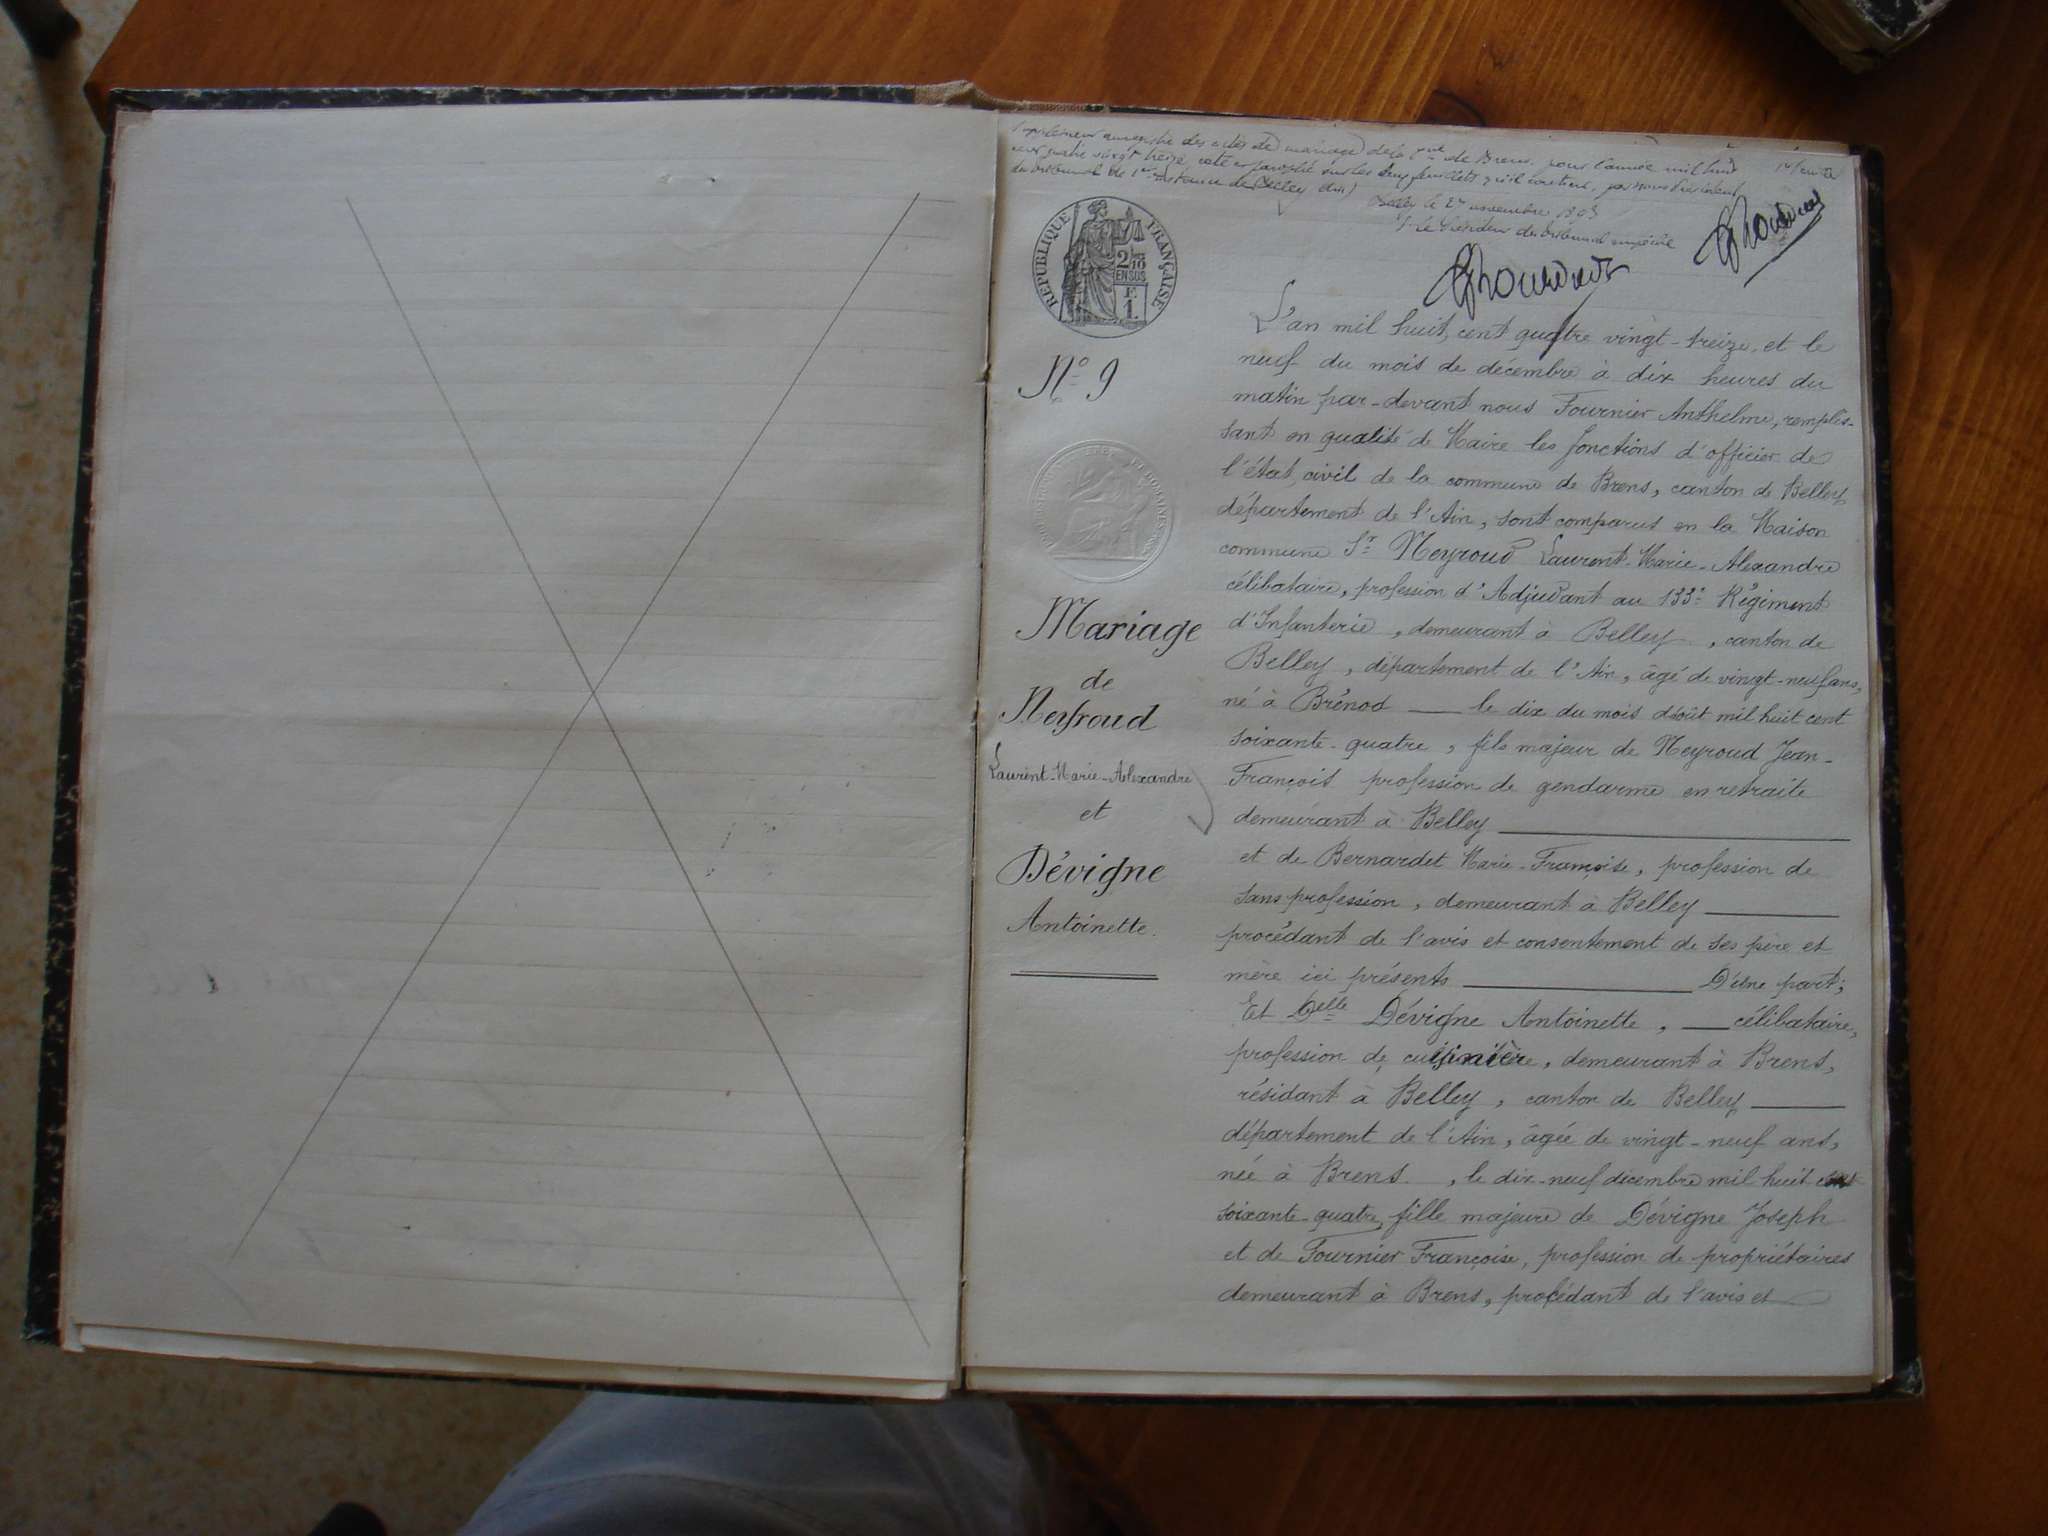 Supplément au registre des actes de mariage de la Cne de Brens pour l'année mil huit 1er feuillet
cent quatre vingt treize coté et paraphé sur les deux feuillets qu'il contient, par nous Président
du tribunal de 1re instance de Belley (Ain)
Belley le 2 novembre 1893
Le Président du tribunal
RÉPUBLIQUE FRANÇAISE
2/10
EN SUS
E
1.
N° 9
Mariage
de
Neyroud
Laurent-Marie-Alexandre
et
Dévigne
Antoinette.
L'an mil huit cent quatre vingt-treize, et le
neuf du mois de décembre à dix heures du
matin par-devant nous Fournier Anthelme, remplis-
sant en qualité de Maire les fonctions d'officier de
l'état civil de la commune de Brens, canton de Belley
département de l'Ain, sont comparus en la Maison
commune Sr Neyroud Laurent-Marie-Alexandre
célibataire, profession d'Adjudant au 133e Régiment
d'Infanterie, demeurant à Belley, canton de
Belley, département de l'Ain, âgé de vingt-neuf ans,
né à Brénod le dix du mois d'août mil huit cent
soixante-quatre, fils majeur de Neyroud Jean-
François profession de gendarme en retraite
demeurant à Belley
et de Bernardet Marie-Françoise, profession de
sans profession, demeurant à Belley
procédant de l'avis et consentement de ses père et
mère ici présents D'une part;
Et Delle Dévigne Antoinette, célibataire,
profession de cuisinière, demeurant à Brens,
résidant à Belley, canton de Belley
département de l'Ain, âgée de vingt-neuf ans,
née à Brens, le dix-neuf décembre mil huit cent
soixante-quatre, fille majeure de Dévigne Joseph
et de Fournier Françoise, profession de propriétaires
demeurant à Brens, procédant de l'avis et